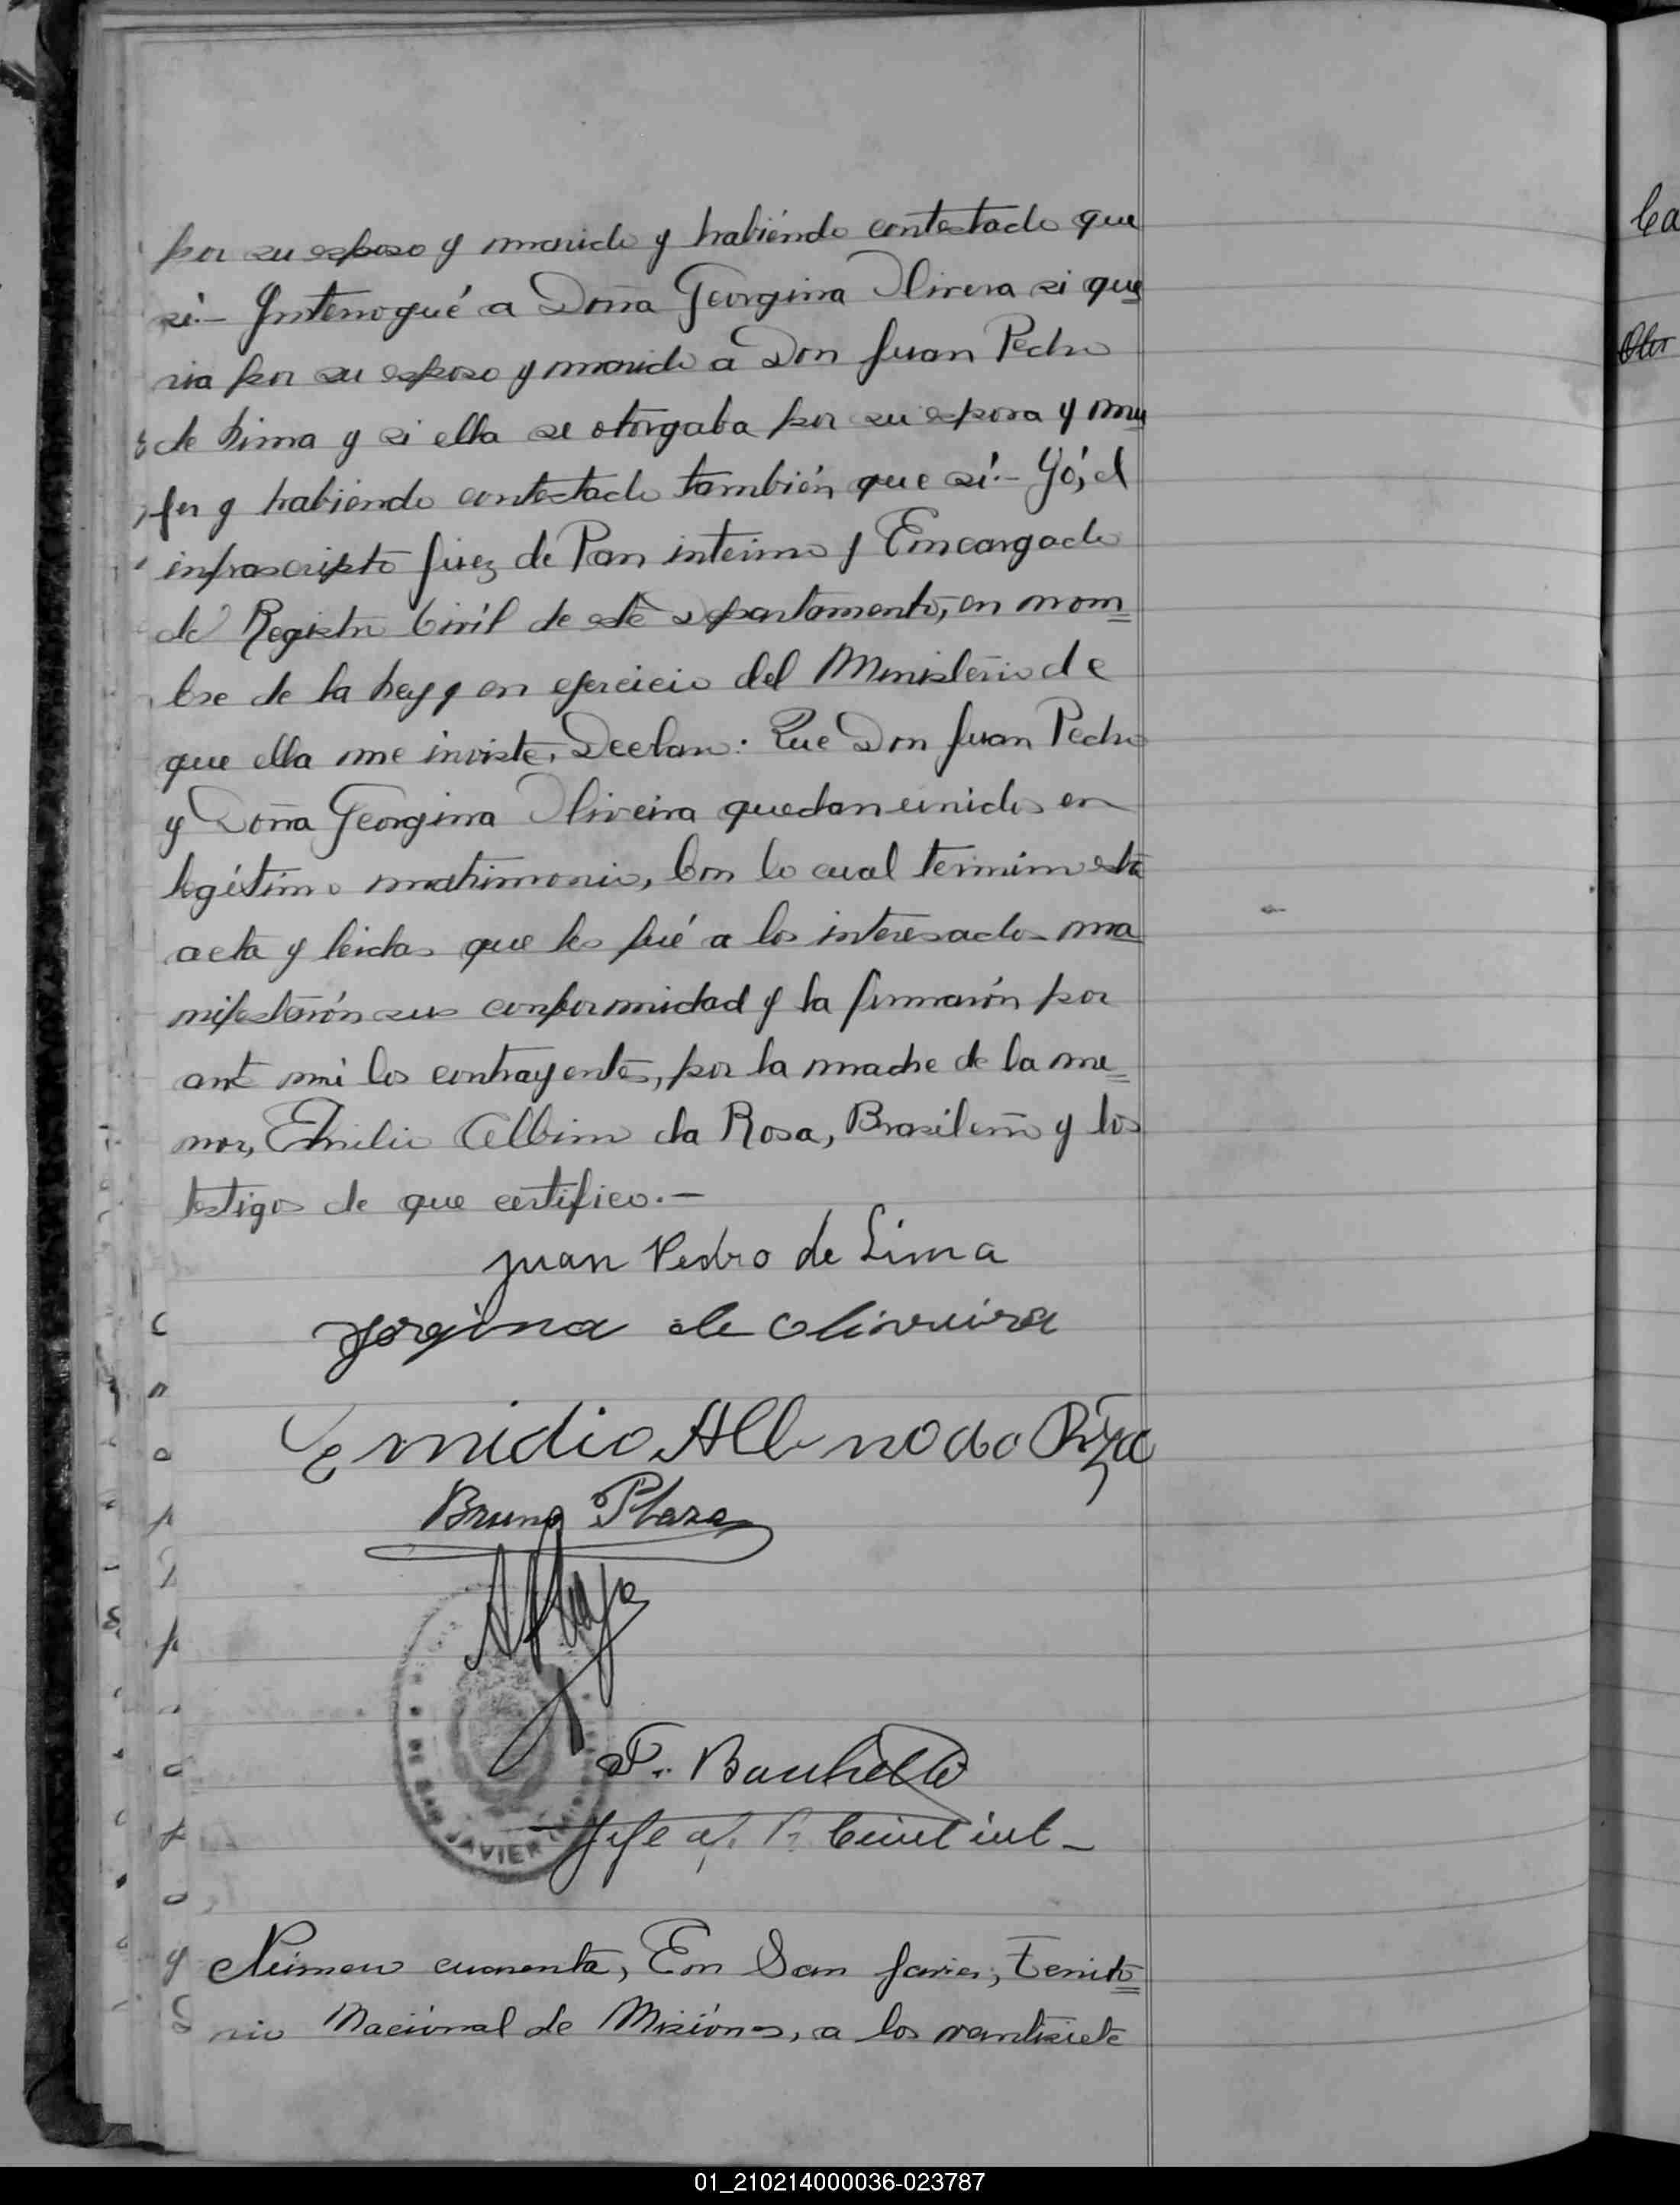 por su esposo y marido y habiéndo contestado que
si.- Interrogué a Doña Georgina Olivera si que
ria por su esposo y marido a Don Juan Pedro
de Lima y si ella se otorgaba por su esposa y mu
jer y habiendo contestado también que sí.- Yó, el
infrascripto Juez de Paz interino y Encargado
del Registro Civíl de este departamento, en nom=
bre de la Ley y en ejercicio del Ministerio de
que ella me inviste, Declaro: Que Don Juan Pedro
y Doña Georgina Oliveira quedan unidos en
legístimo matrimonio, Con lo cual termino esta
acta y leidas que les fué a los interesados ma
nifestarón sus conformidad y la firmarón por
ante mi los contrayentes, por la madre de la me=
nor, Emilio Albino da Rosa, Brasileño y los
testigos de que certifico.-
Juan Pedro de Lima
Jorgina de Oliveira
Emidio Albino da Roza
Bruno Plaza
DE SAN JAVIER
F.
Jefe del R. Civil int-
Número cuarenta, En San Javier, Territo=
rio Nacional de Misiónes, a los veintisiete
Ca
01_210214000036-023787